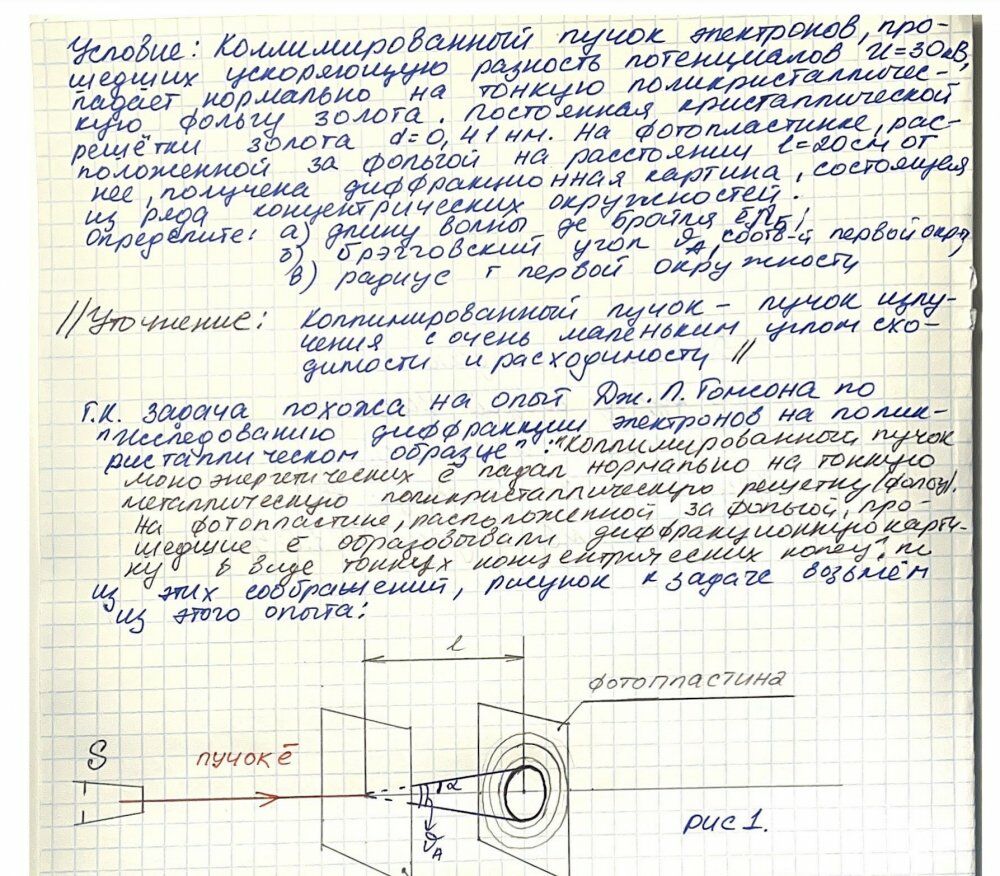 Условие: Коллимированный пучок электронов, про-
шедших ускоряющую разность потенциалов U=30кВ,
падает нормально на тонкую поликристалличес-
кую фольгу золота. Постоянная кристаллической
решётки золота d=0,41нм. На фотопластинке, рас-
положенной за фольгой на расстоянии l=20см от
нее, получена дифракционная картина, состоящая
из ряда концентрических окружностей.
Определите: а) длину волны де Бройля ē λБ;
б) брэгговский угол θA, соотв-й первой окр,
в) радиус r первой окружности
//Уточнение: Коллимированный пучок – пучок излу-
чения с очень маленьким углом схо-
димости и расходимости //
Т.к. задача похожа на опыт Дж. П. Томсона по
"исследованию дифракции электронов на полик-
ристаллическом образце": "Коллимированный пучок
моноэнергетических ē падал нормально на тонкую
металлическую поликристаллическую решетку (фольгу).
На фотопластине, расположенной за фольгой, про-
шедшие ē образовывали дифракционную карти-
ну в виде тонких концентрических колец",
из этих соображений, рисунок к задаче возьмём
из этого опыта:
l
фотопластина
S
пучок ē
α
θA
рис 1.